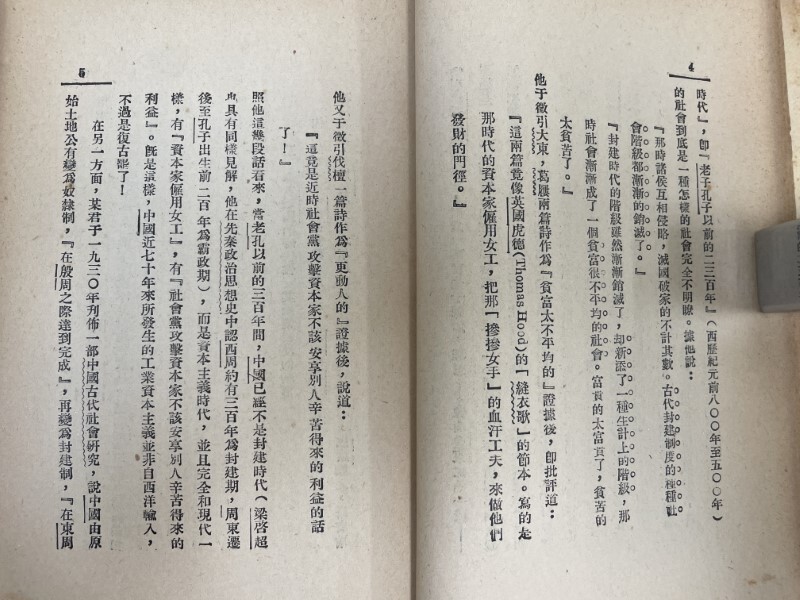 4
時代』，卽『老子孔子以前的二三百年』（西歷紀元前八〇〇年至五〇〇年）
的社會到底是一種怎樣的社會完全不明瞭。據他說：
『那時諸侯互相侵略，滅國破家的不計其數。古代封建制度的種種社
會階級都漸漸的銷滅了。』
『封建時代的階級雖然漸漸銷滅了，却新添了一種生計上的階級，那
時社會漸漸成了一個貧富很不平均的社會。富貴的太富貴了，貧苦的
太貧苦了。』
他于徵引大東，葛屨兩篇詩作爲『貧富太不平均的』證據後，卽批評道：
『這兩篇竟像英國虎德(Thomas Hood)的「縫衣歌」的節本。寫的是
那時代的資本家僱用女工，把那「摻摻女手」的血汗工夫，來做他們
發財的門徑。』
5
他又于徵引伐檀一篇詩作爲『更動人的』證據後，說道：
『這竟是近時社會黨攻擊資本家不該安享別人辛苦得來的利益的話
了！』
照他這幾段話看來，當老孔以前的三百年間，中國已經不是封建時代（梁啓超
也具有同樣見解，他在先秦政治思想史中認西周約有三百年爲封建期，周東遷
後至孔子出生前二百年爲霸政期），而是資本主義時代，並且完全和現代一
樣，有『資本家僱用女工』，有『社會黨攻擊資本家不該安享別人辛苦得來的
利益』。旣是這樣，中國近七十年來所發生的工業資本主義並非自西洋輸入，
不過是復古罷了！
在另一方面，某君于一九三〇年刊佈一部中國古代社會研究，說中國由原
始土地公有變爲奴隸制，『在殷周之際達到完成』，再變爲封建制，『在東周